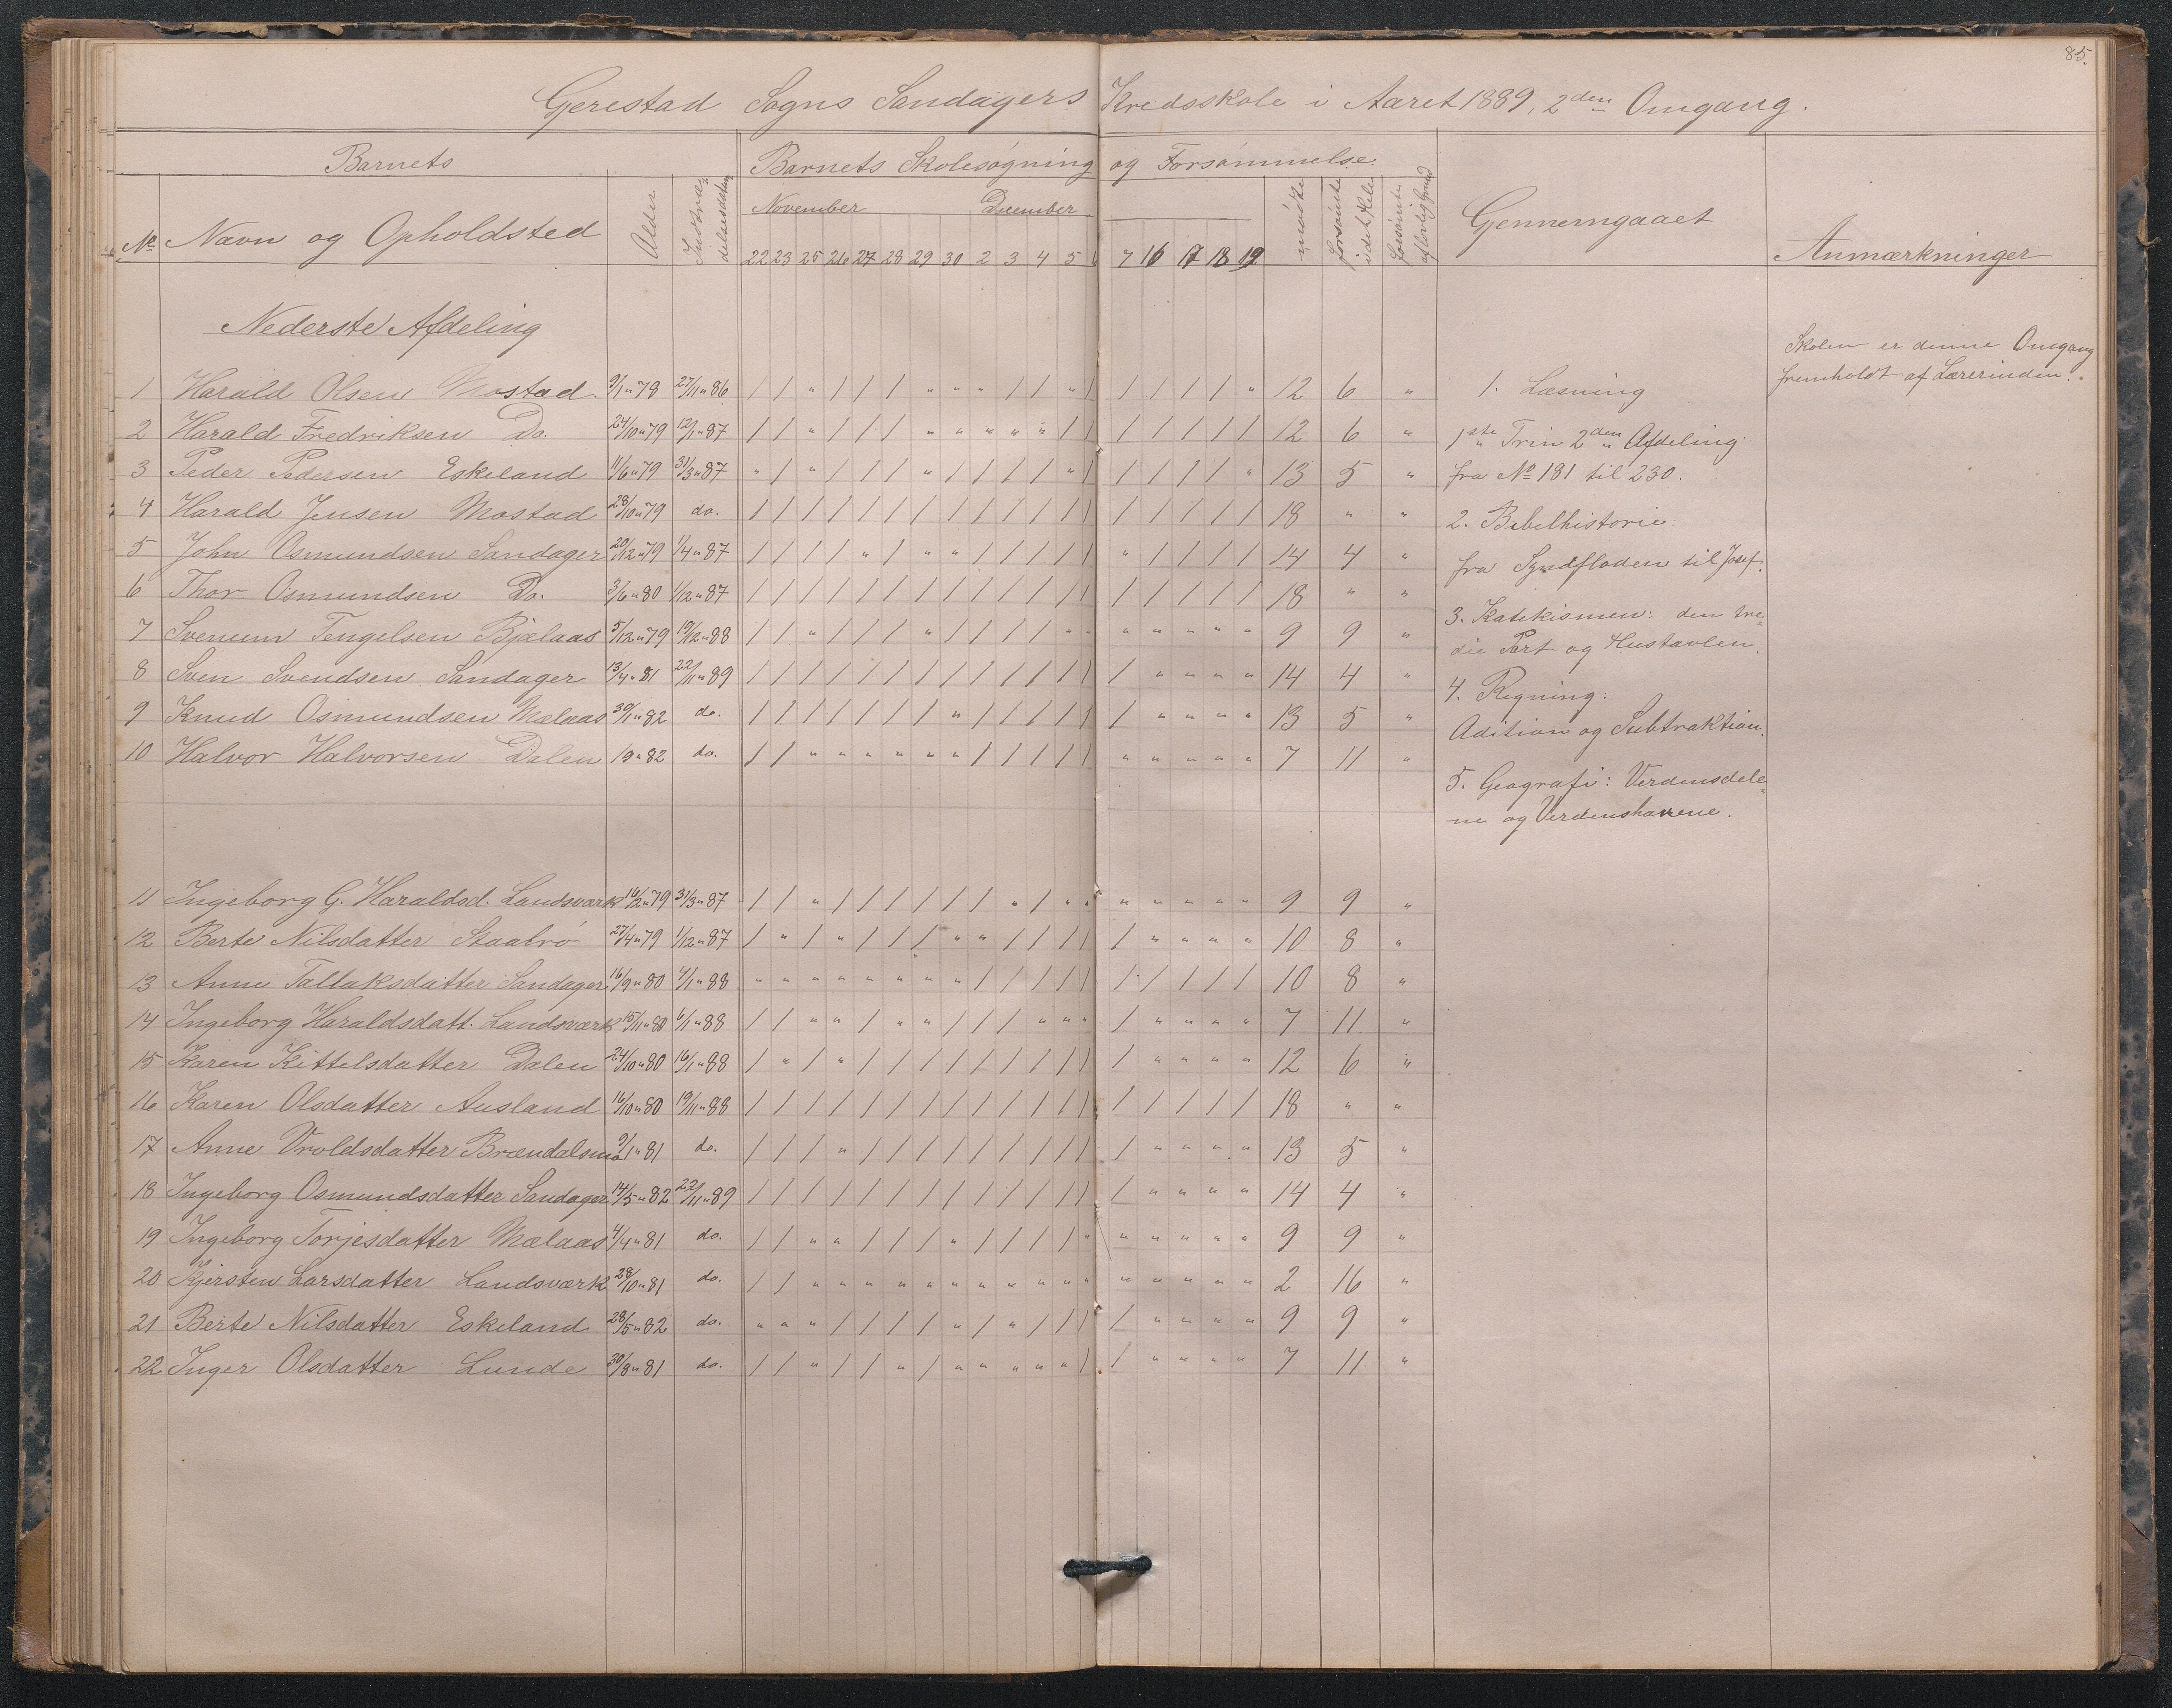 85.
Gerestad Sogns Sandagers Kredsskole i Aaret 1889, 2den Omgang.
Barnets Barnets Skolesøgning og Forsømmelse.
No Navn og Opholdsted Alder Indtræ-delsesdatum November December mødte forsømte i det Hele forsømte af lovlig Grund Gennemgaaet Anmærkninger
22 23 25 26 27 28 29 30 2 3 4 5 6 7 16 17 18 19
Nederste Afdeling
1 Harald Olsen Mostad. 9/1 " 78 27/11 " 86 / / " / / / " " " / / " / / / / / " 12 6 "
2 Harald Fredriksen Do. 24/10 " 79 12/1 " 87 / / " / / / " " " " " / / / / / / / 12 6 "
3 Peder Pedersen Eskeland 11/6 " 79 31/3 " 87 " / " / / / " / / / / " / / / / / " 13 5 "
4 Harald Jensen Mostad 28/10 " 79 do. / / / / / / / / / / / / / / / / / / 18 " "
5 John Osmundsen Sandager 20/12 " 79 1/4 " 87 / / / / " / " " / / / / / " / / / / 14 4 "
6 Thor Osmundsen Do. 3/6 " 80 1/12 " 87 / / / / / / / / / / / / / / / / / / 18 " "
7 Svenum Tengelsen Bjelaas 5/12 " 79 19/12 " 88 / / " / / / " / / / / " " " " " " " 9 9 "
8 Sven Svendsen Sandager 13/4 " 81 22/11 " 89 / / / / / / / / / / / / / / " " " " 14 4 "
9 Knud Osmundsen Mælaas 30/1 " 82 do. / / / / / / / " / / / / / / " " " " 13 5 "
10 Halvor Halvorsen Dalen 19 " 82 do. / / " " " " " " / / / / / " " " " " 7 11 "
11 Ingeborg G. Haraldsd. Landsværk 16/2 " 79 31/3 " 87 / / " / / / / / / " / " " " " " " " 9 9 "
12 Berte Nilsdatter Staalrø 27/4 " 79 1/12 " 87 / " / " / / / " " / / / / / " " " " 10 8 "
13 Anne Tallaksdatter Sandager 16/9 " 80 4/1 " 88 " " " " " " " " / / / / / / / / / / 10 8 "
14 Ingeborg Haraldsdatt. Landsværk 15/11 " 80 6/1 " 88 / / " " / " " / / / " " " / " " " " 7 11 "
15 Karen Kittelsdatter Dalen 24/10 " 80 16/1 " 88 / " / " / / / / / / / / / / " " " " 12 6 "
16 Karen Olsdatter Ausland 16/10 " 80 19/11 " 88 / / / / / / / / / / / / / / / / / / 18 " "
17 Anne Vroldsdatter Brændalsmo 9/1 " 81 do. / / / " / / / / / / / / / / " " " " 13 5 "
18 Ingeborg Osmundsdatter Sandager 14/5 " 82 22/11 " 89 / / / / / / / / / / / / / / " " " " 14 4 "
19 Ingeborg Torjesdatter Mælaas 4/4 " 81 do. / / " " / / / " / / / / " " " " " " 9 9 "
20 Kjersten Larsdatter Landsværk 28/10 " 81 do. / / " " " " " " " " " " " " " " " " 2 16 "
21 Berte Nilsdatter Eskeland 28/5 " 82 do. " " " / / / / " / " / / / / " " " " 9 9 "
22 Inger Olsdatter Lunde 30/8 " 81 do. / / " / / " / " " " " " / / " " " " 7 11 "
1. Læsning
1ste Trin 2den Afdeling
fra No 181 til 230.
2. Bibelhistorie:
fra Syndfloden til Josef.
3. Katekismen: den tre-
die Part og Hustavlen.
4. Regning:
Adition og Subtraktion.
5. Geografi: Verdensdele-
ne og Verdenshavene.
Skolen er denne Omgang
fremholdt af Lærerinden.